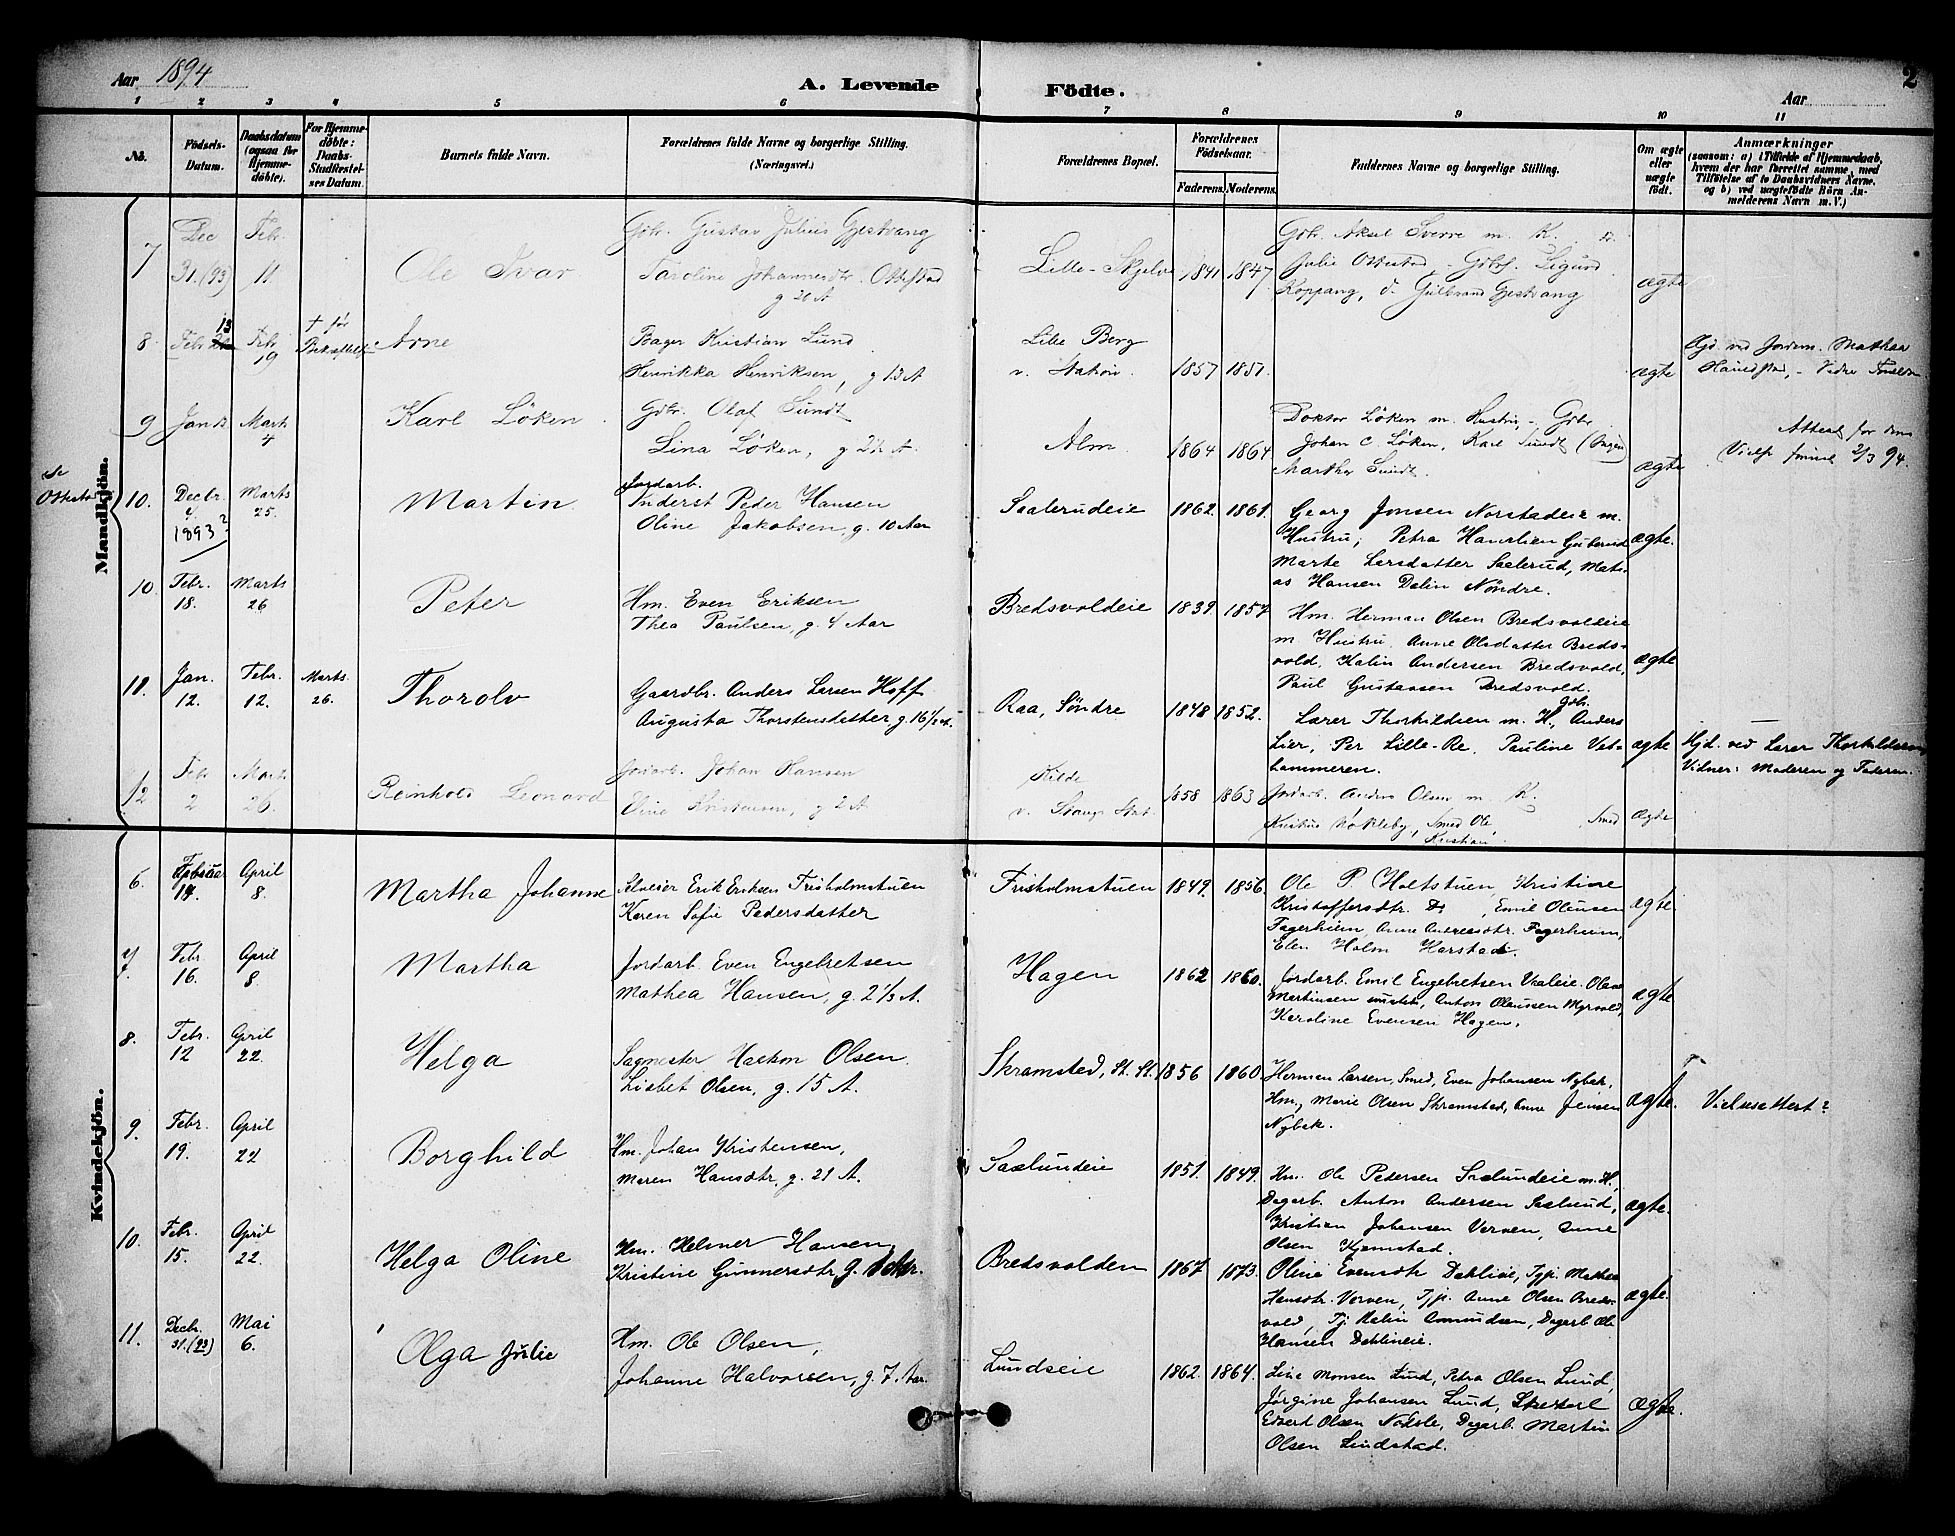 Aar 1894
A. Levende Födte.
Aar
2
1 2 3 4 5 6 7 8 9 10 11
No.
Födsels-Datum.
Daabsdatum (ogsaa for Hjemme-döbte).
For Hjemme-döbte: Daabs-Stadfæstel-ses Datum.
Barnets fulde Navn.
Forældrenes fulde Navne og borgerlige Stilling. (Næringsvei.)
Forældrenes Bopæl.
Forældrenes Födselsaar.
Faderens. Moderens.
Faddernes Navne og borgerlige Stilling.
Om ægte eller uægte födt.
Anmærkninger (saasom: a) i Tilfælde af Hjemmedaab, hvem der har forrettet samme, med Tilföielse af to Daabsvidners Navne, og b) ved uægtefödte Börn An-melderens Navn m. V.)
Mandkjön.
7 Dec 31. (93) Febr. 11 Ole Ivar
Gbr. Gustav Julius Gjestvang
Karoline Johannesdtr. Ottestad
g 20 A
Lille-Skjelve 1841 1847
Gbr. Aksel Sverre m. K.
Julie Ottestad, Gbs. Sigurd
Koppang, d. Gulbrand Gjestvang
ægte
8 Febr 13 Febr 19 † før Bekræftelse Arne
Bager Kristian Lund
Henrikka Henriksen, g 13 A
Lille Berg
v. Station. 1857 1851.
ægte
Hjd. ved Jordm. Mathea
9 Jan Marts 4 Karl Løken
Gbr. Olaf Sundt
Lina Løken, g 2½ A.
Alm 1864 1864
Doktor Løken m. Hustru, Gbr.
Johan C Løken, Karl Sundt (Ungk)
Marthe Sundt.
ægte
Attest for
Vielse 2/3 94.
se Ottestad
10. Decbr. 4. 1893? Marts 25. Martin
Jordarb.
Inderst Peder Hansen
Oline Jakobsen, g. 10 Aar
Saalerudeie 1862. 1861.
Georg Jonsen Norstadeie m.
Hustru; Petra
Marte Larsdatter Saelerud, Mat-
as Hansen Dalin Nøndre.
ægte.
10. Febr. 18. Marts 26 Peter
Hm. Even Eriksen
Thea Paulsen, g. 4 Aar
Bredsvoldeie 1839 1857
Hm. Herman Olsen Bredsvoldeie
m. Hustru, Anne Olsdatter Breds-
vold, Kalin Andersen Bredsvold,
Paul Gustavsen Bredsvold.
ægte
11. Jan. 12. Febr. 12. Marts 26. Thorolv
Gaardbr. Anders Larsen Hoff
Augusta Thorstensdatter, g. 16½ A.
Raa, Søndre 1848 1852.
Gbr.
Lærer Thorkildsen m. H., Anders
Lier, Per Lille-Re, Pauline Vet-
hammeren.
ægte
Hjd. ved Lærer Thorkildsen
Vidner: Moderen og Faderen.
12 Febr 2 Marts 26. Reinhold Leonard
Jordarb. Johan Hansen
Kristensen, g 2 A
Kilde
v. Stange Stat. 1858 1863
Jordarb. Anders Olsen m. K.
Nøkleby, Smed Ole
Kristian
Smed
ægte
Kvindekjön.
6. Februar 14. April 8. Martha Johanne
Selveier Erik Eriksen Frisholmstuen
Karen Sofie Pedersdatter
Frisholmstuen 1849. 1856.
Ole P Holtstuen, Kristine
Kristoffersdtr. Ds, Emil Olausen
Fagerheim, Anne Andreasdtr. Fagerheim,
Elen Holm Harstad.
ægte.
7. Febr 16. April 8. Martha
Jordarb. Even Engebretsen
Mathea Hansen, g. 2 1/3 A.
Hagen 1862 1860.
Jordarb. Emil Engebretsen Vaaleie, Olava
Martinsen, Anton Olaussen Myrvold,
Karoline Evensen Hagen.
ægte
8. Febr. 12 April 22. Helga
Sagmester Haakon Olsen
Lisbet Olsen, g. 15 A.
Skramstad, St. St. 1856 1860.
Herman Larsen, Smed, Even Johansen Nybek,
Hm., Marie Olsen Skramstad, Anne Jensen
Nybek.
ægte.
Vielsesattest?
9. Febr. 19. April 22 Borghild
Hm. Johan Kristensen,
Maren Hansdtr. g. 21 A.
Saslundeie 1851. 1849.
Hm. Ole Petersen Saslundeie m. H.,
Dagarb. Anton Andersen Saslund,
Kristian Johansen Verven, Anne
Olsen Kjemstad.
ægte.
10. Febr. 15. April 22. Helga Oline
Hm. Helmer Hansen,
Kristine Gunnersdtr, g. 1 Aar.
Bredsvolden 1867. 1873.
Oline Evensdtr Dahlieie, Tjp. Mathea
Hansdtr. Verven, Tjp. Anne Olsen Breds-
vold, Tj. Kalin Amundsen, Dagarb. Ole
Hansen Dahlineie.
ægte.
11. Decbr. 31. (93) Mai 6. Olga Julie
Hm. Ole Olsen,
Johanne Halvorsen, g. 7. Aar.
Lundseie 1862. 1864.
Line Monsen Lund, Petra Olsen Lund,
Jørgine Johansen Lund,
Edvard Olsen Nøkle, Dagarb. Martin
Olsen Lindstad.
ægte.